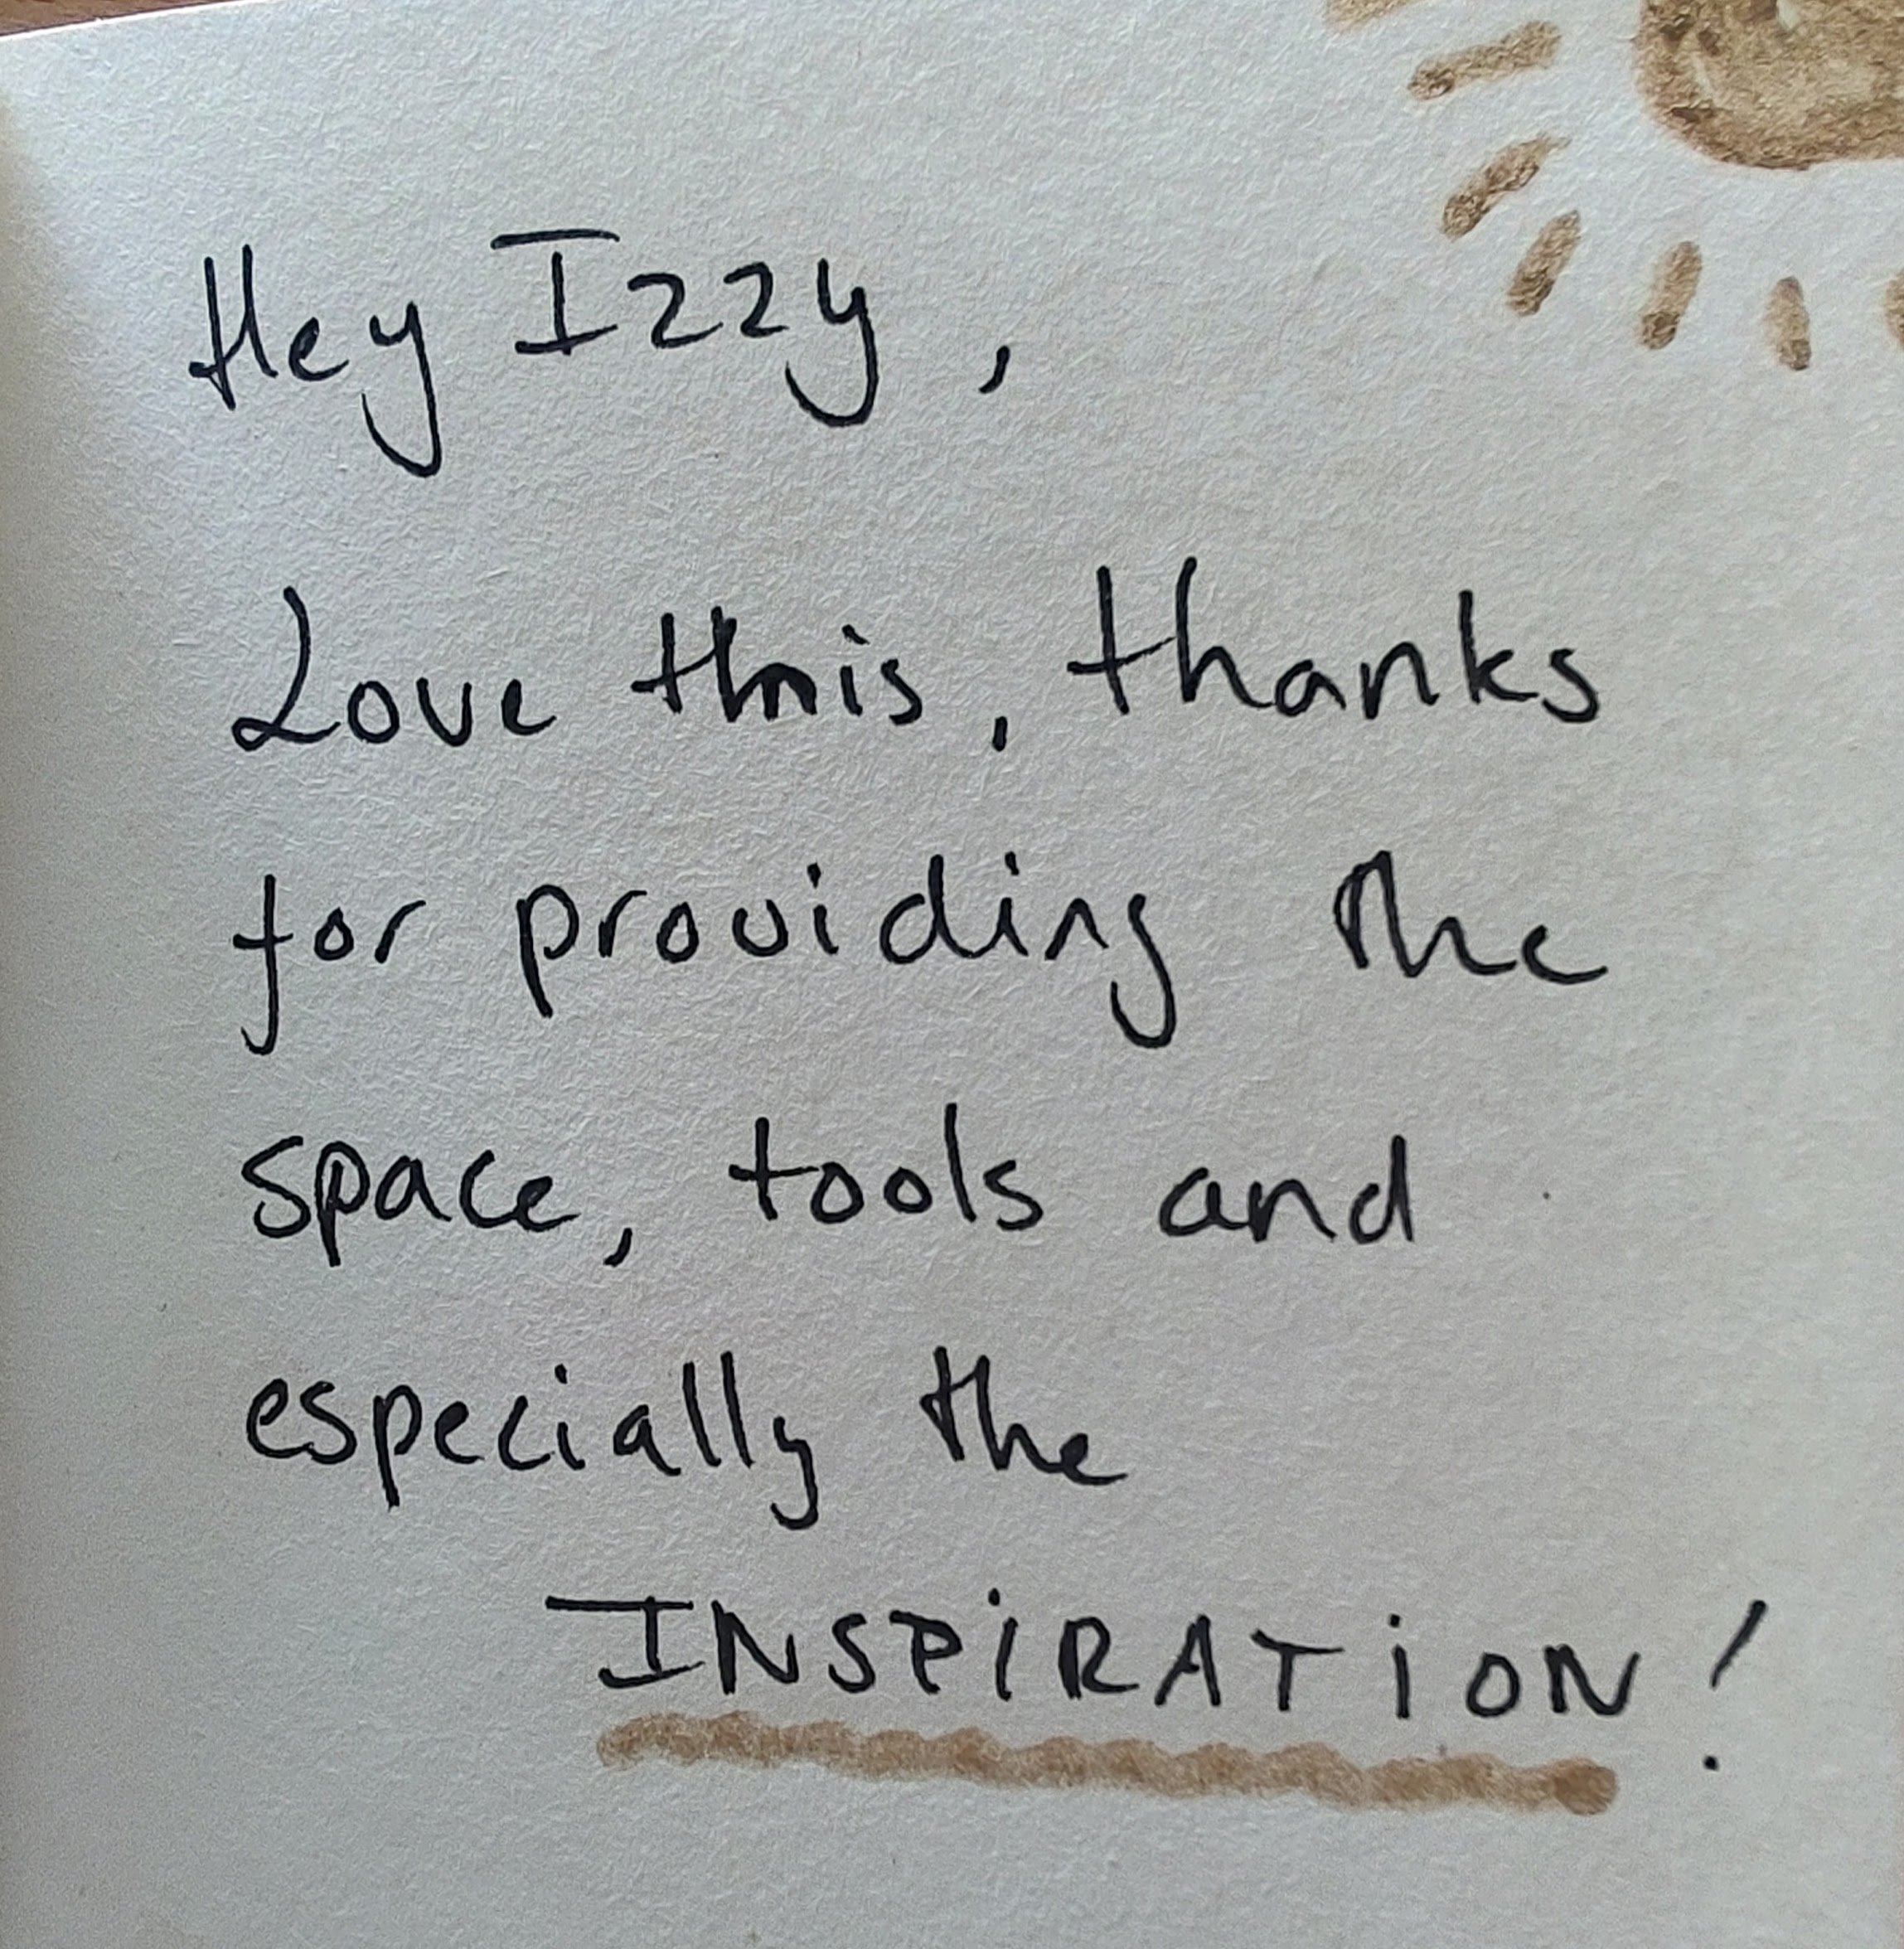 Hey Izzy,
Love this, thanks
for providing the
space, tools and
especially the
INSPiRATiON!